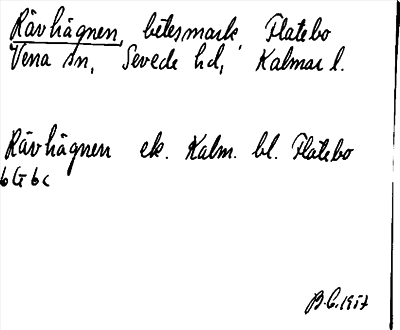 Rävhägnen, betesmark, Flatebo
Vena sn, Sevede hd, Kalmar l.
Rävhägnen ek. Kalm. bl. Flatebo
6G6c
B.G. 1957